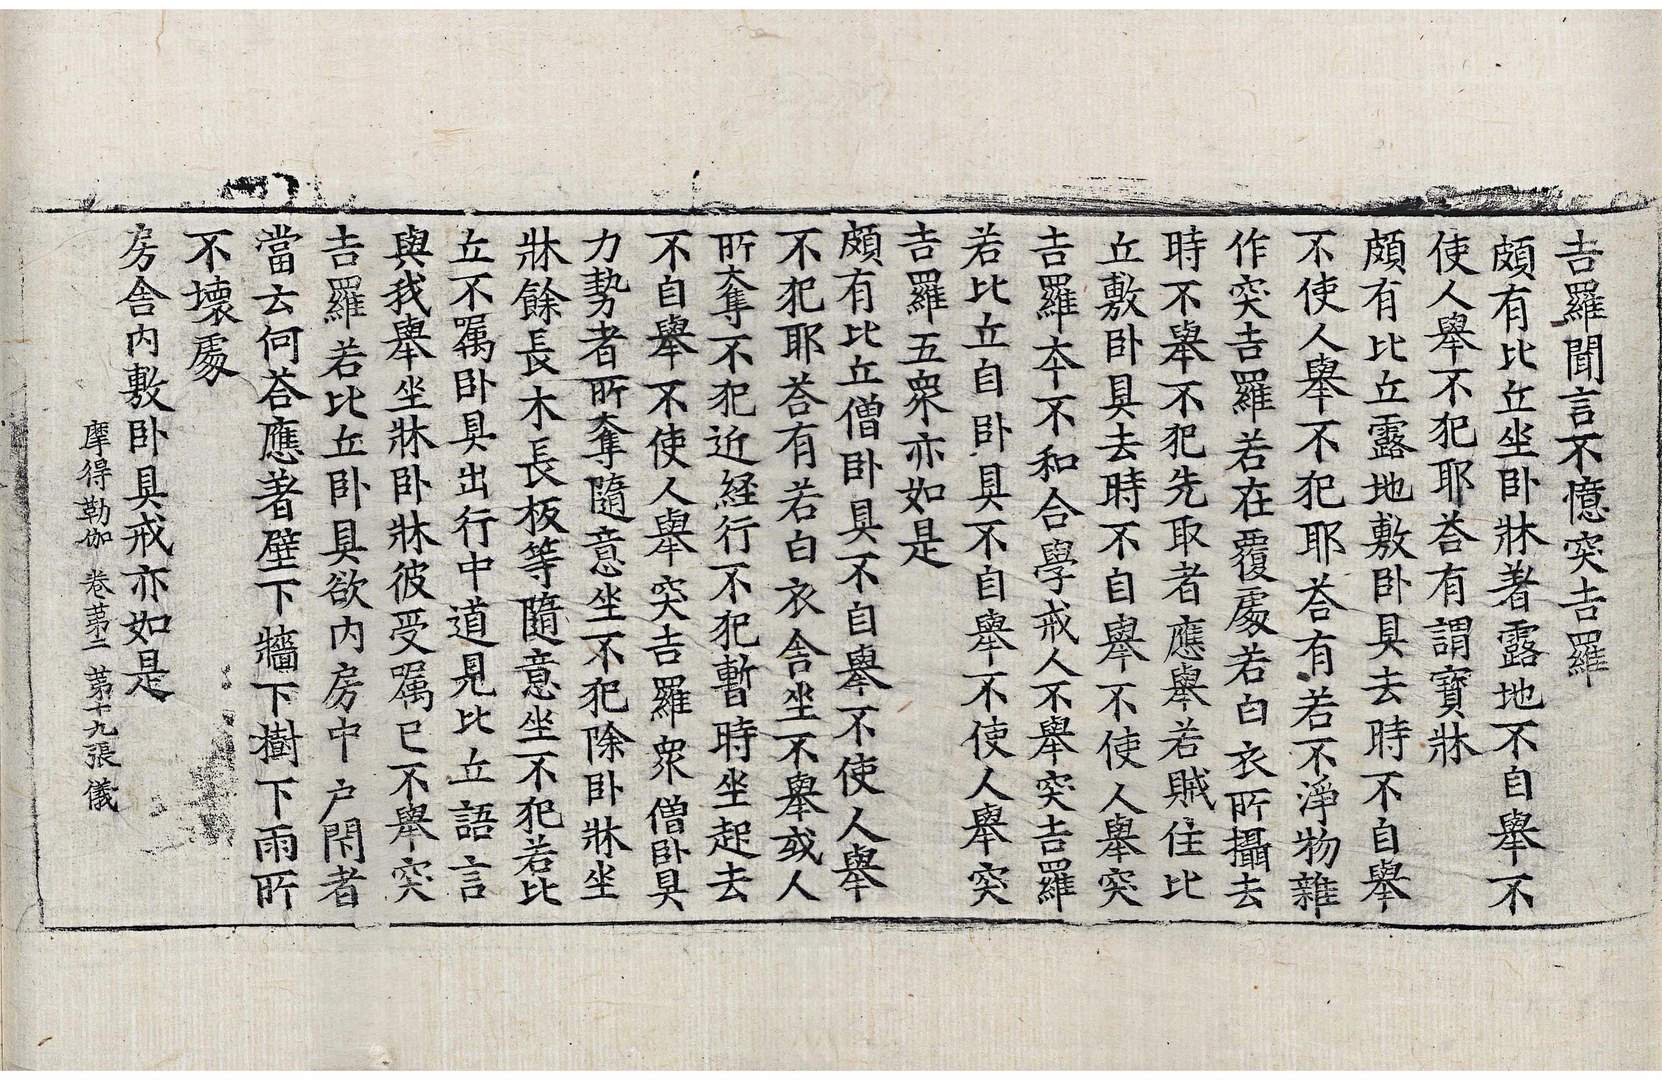 吉羅聞言不憶突吉羅
頗有比丘坐卧牀著露地不自舉不
使人舉不犯耶荅有謂寶牀
頗有比丘露地敷卧具去時不自舉
不使人舉不犯耶荅有若不淨物雜
作突吉羅若在覆處若白衣所攝去
時不舉不犯先取者應舉若賊住比
丘敷卧具去時不自舉不使人舉突
吉羅夲不和合學戒人不舉突吉羅
若比丘自卧具不自舉不使人舉突
吉羅五衆亦如是
頗有比丘僧卧具不自舉不使人舉
不犯耶荅有若白衣舍坐不舉或人
所奪不犯近経行不犯暫時坐起去
不自舉不使人舉突吉羅衆僧卧具
力勢者所奪隨意坐不犯除卧牀坐
牀餘長木長板等隨意坐不犯若比
丘不囑卧具出行中道見比丘語言
與我舉坐牀卧牀彼受囑已不舉突
吉羅若比丘卧具欲内房中户閇者
當云何荅應著壁下牆下樹下雨所
不壞處
房舍内敷卧具戒亦如是
摩得勒伽 卷第二 第十九張 儀